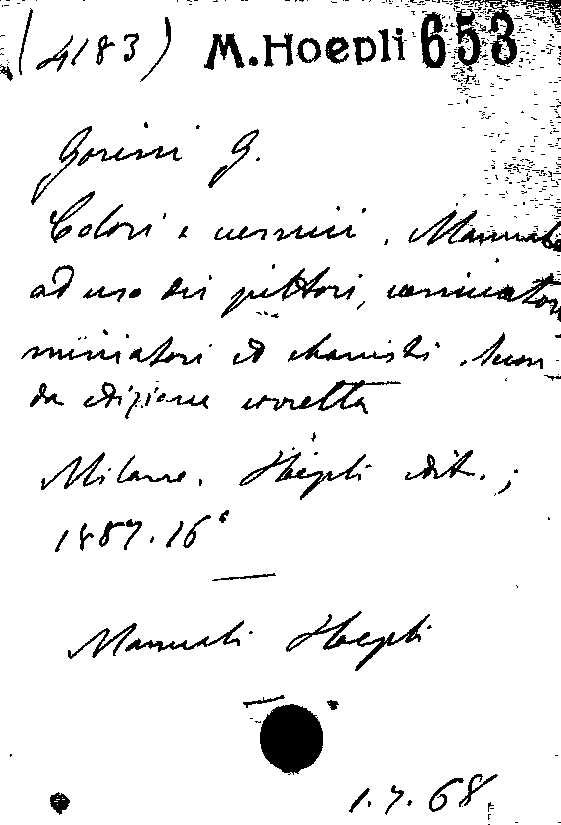 (4183) M.Hoepli 653
Gorini G.
Colori e vernici. Manuale
ad uso dei pittori, verniciatori
miniatori ed ebanisti. Secon
da edizione corretta
Milano. Hoepli edit.;
1887. 16°
Manuali Hoepli
1.7.68